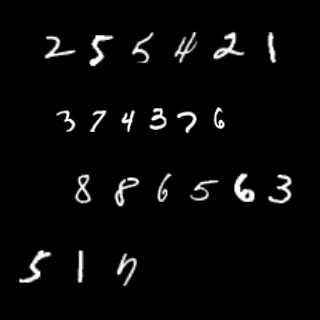 2 5 5 4 2 1
3 7 4 3 7 6
8 8 6 5 6 3
5 1 7